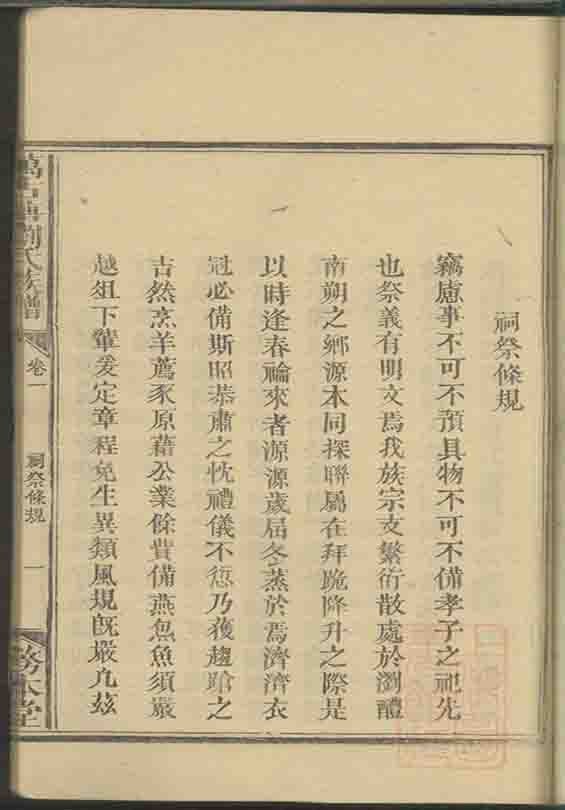 祠祭條規
竊慮事不可不預具物不可不備孝子之祀先
也祭義有明文焉我族宗支繁衍散處於瀏醴
南朔之鄉源本同探聯屬在拜跪降升之際是
以時逢春禴來者源源歲屆冬蒸於焉濟濟衣
冠必備斯昭恭肅之忱禮儀不愆乃獲趨蹌之
吉然烹羊薦豕原藉公業餘貲備燕炰魚須嚴
越俎下輩爰定章程免生異類風規旣嚴凢玆
劉氏族譜
卷一
祠祭條規
一
務本堂